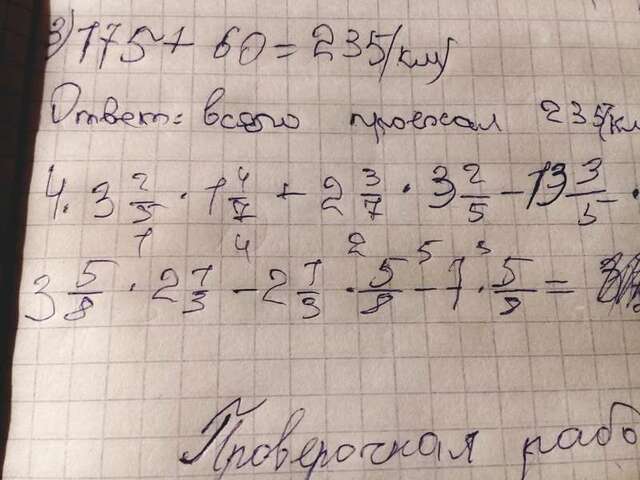 3) 175 + 60 = 235 (км)
Ответ: всего проехал 235 (км
4. 3 2/5 · 1 4/7 + 2 3/7 · 3 2/5 - 13 3/5 ·
1 4 2 5
3 5/8 · 2 1/3 - 2 1/3 · 5/8 - 7 · 5/9 =
Проверочная рабо